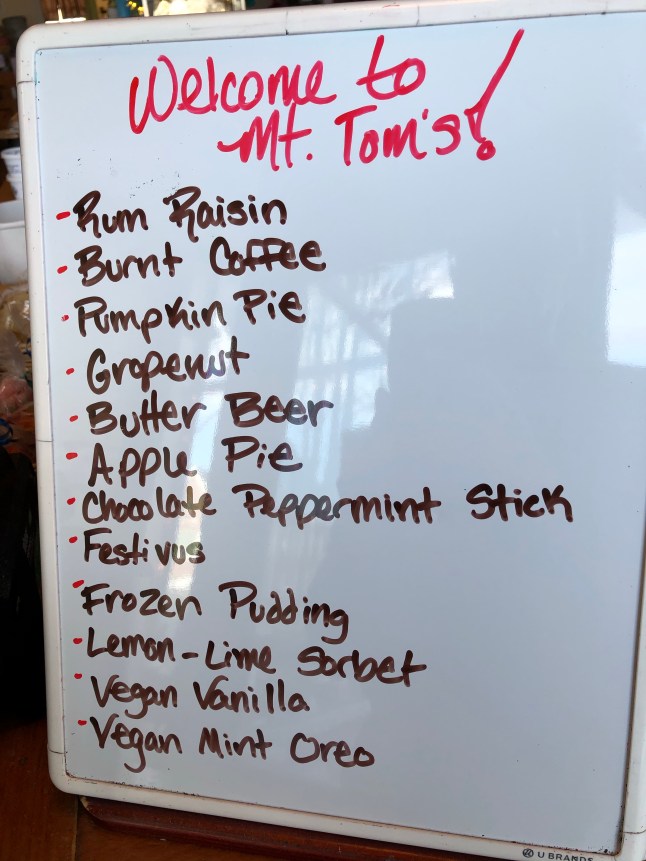 Welcome to
Mt. Tom's!
- Rum Raisin
- Burnt Coffee
- Pumpkin Pie
- Gropenut
- Butter Beer
- Apple Pie
- Chocolate Peppermint Stick
- Festivus
- Frozen Pudding
- Lemon-Lime Sorbet
- Vegan Vanilla
- Vegan Mint Oreo
U BRANDS